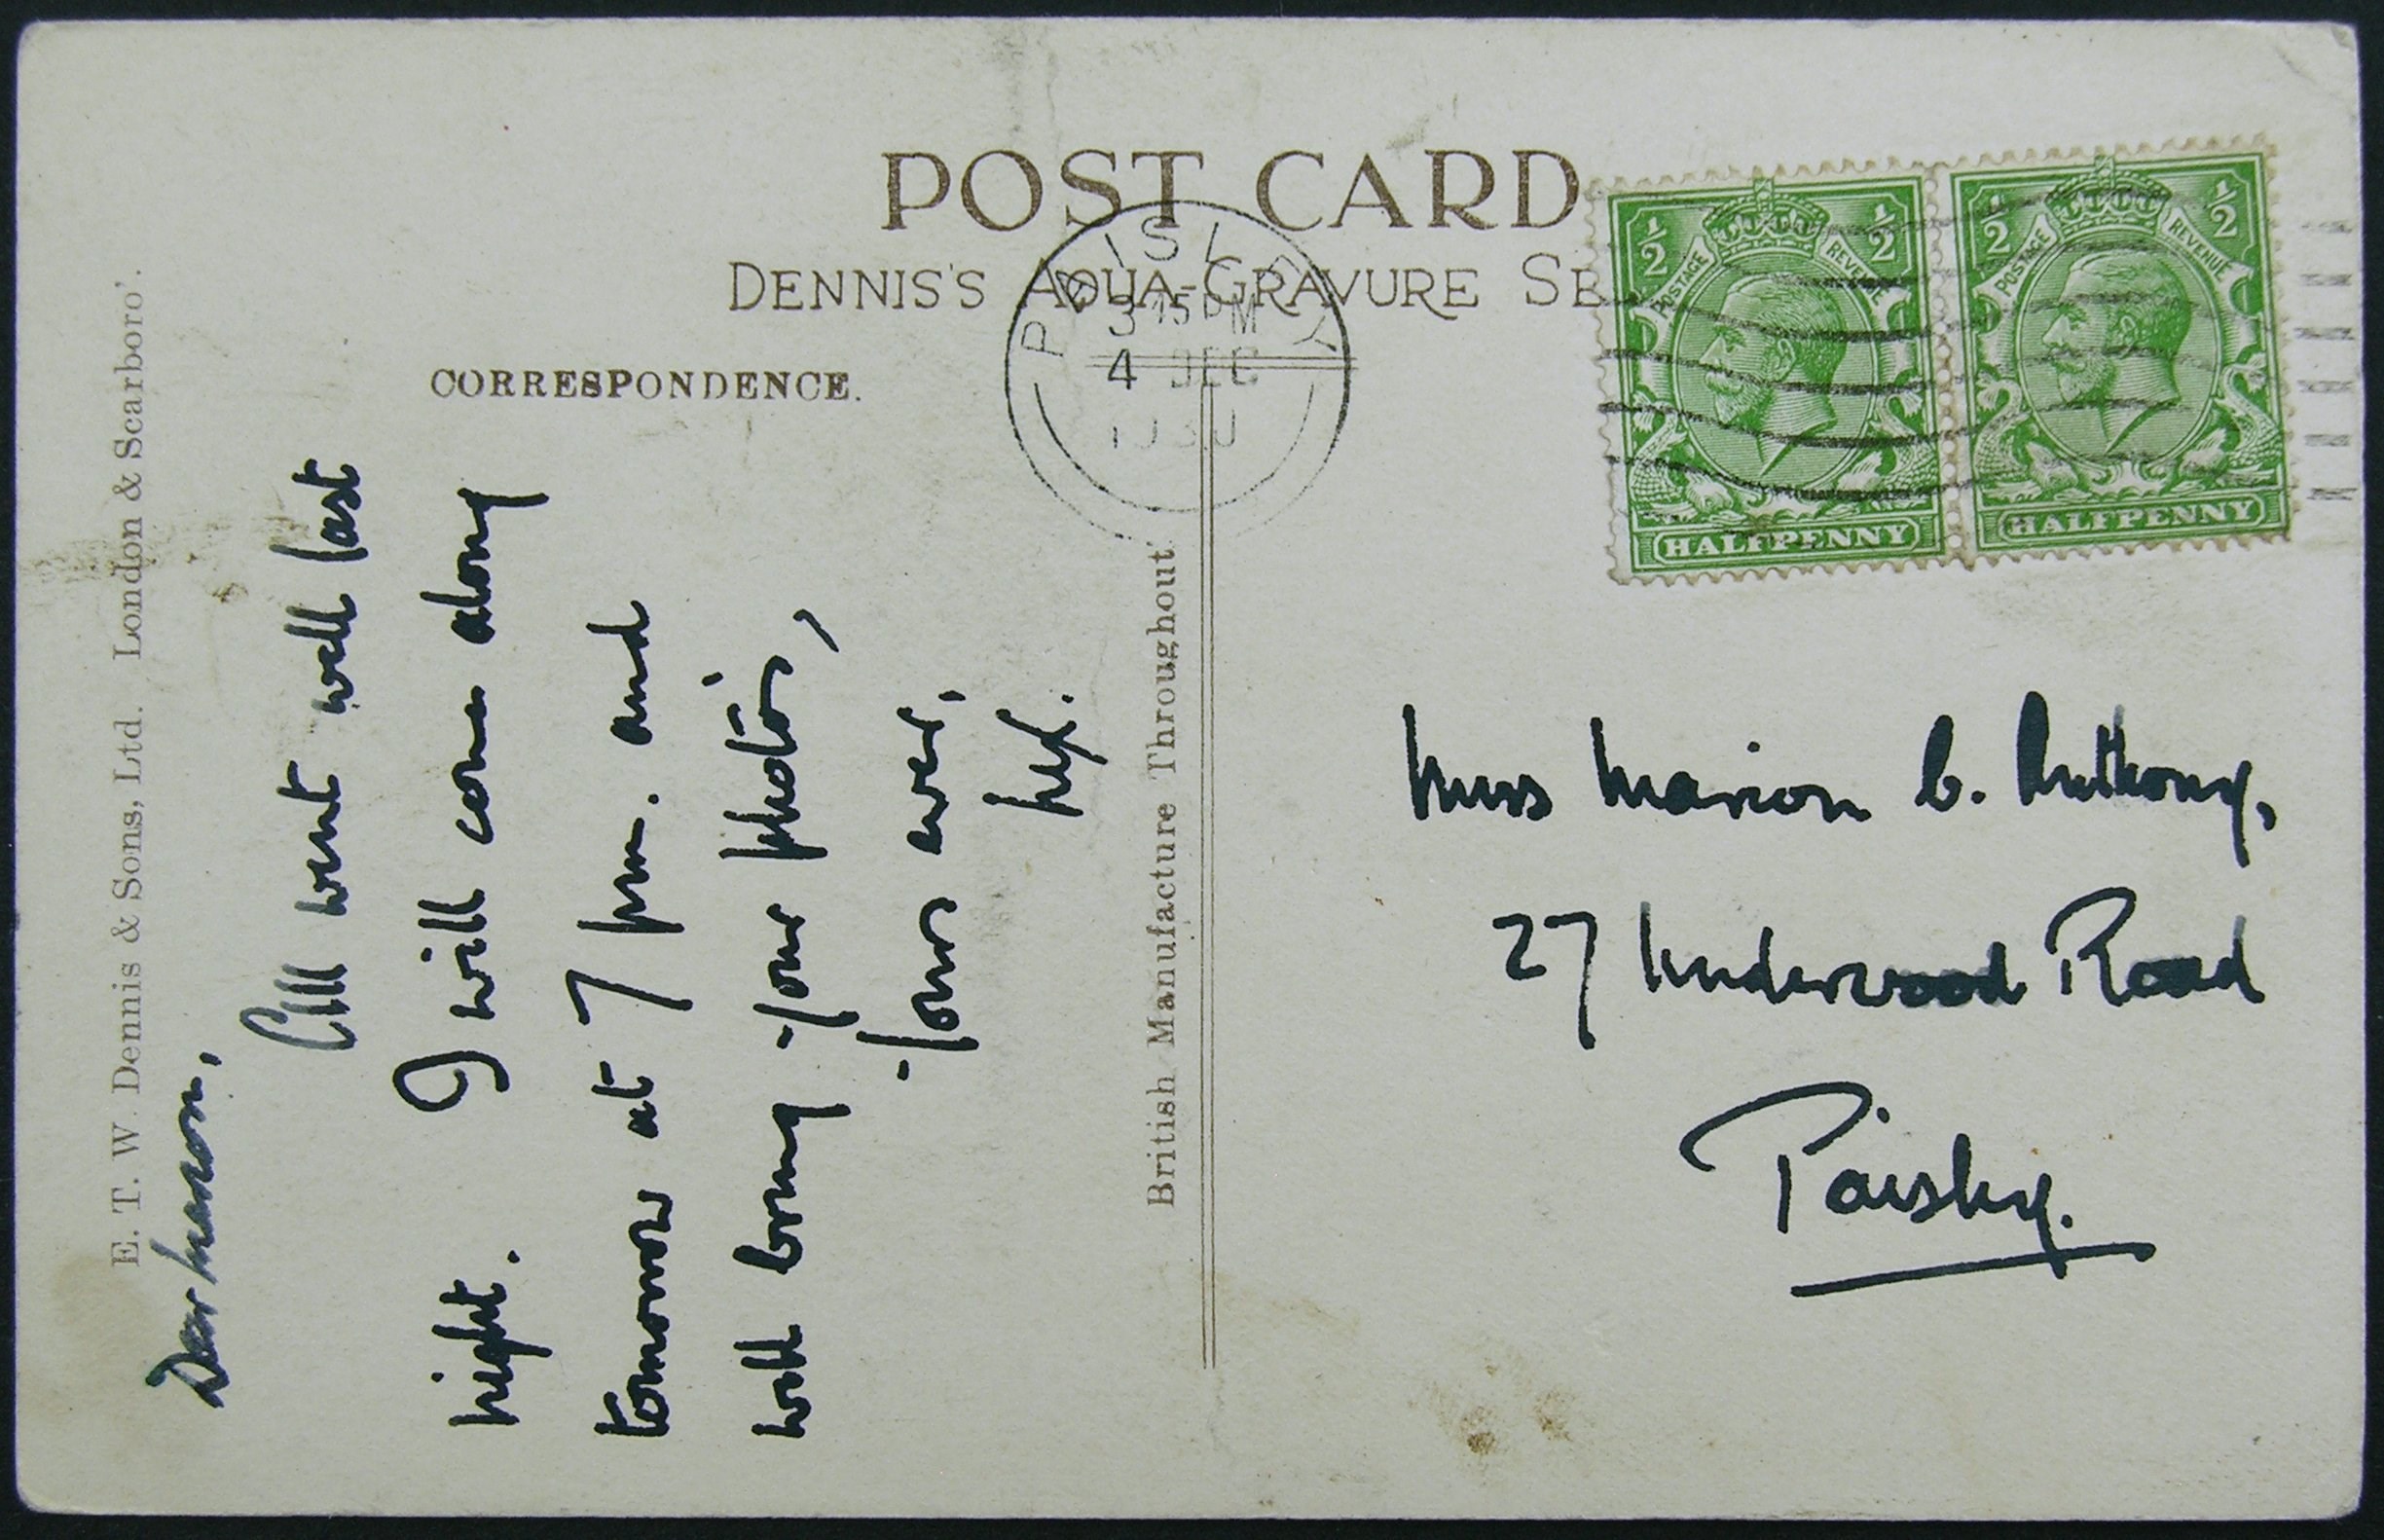 POST CARD
DENNIS'S AQUA-GRAVURE SE
CORRESPONDENCE.
E. T. W. Dennis & Sons, Ltd. London & Scarboro'.
British Manufacture Throughout
PAISLEY
3 15 PM
4 DEC
1930
½ ½
POSTAGE REVENUE
HALFPENNY
½ ½
POSTAGE REVENUE
HALFPENNY
Dear Marion,
All went well last
night. I will come along
tomorrow at 7 pm. and
will bring your photos,
Yours ever,
Miss Marion C. Anthony,
27 Underwood Road
Paisley.